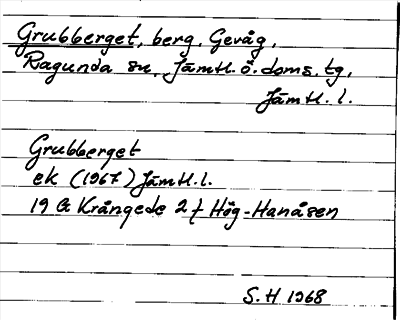 Grubberget, berg, Gevåg,
Ragunda sn. Jämtl. ö. doms. tg,
Jämtl. l.
Grubberget
ek (1967) Jämtl. l.
19 G Krångede 2 f Hög-Hanåsen
S.H 1968